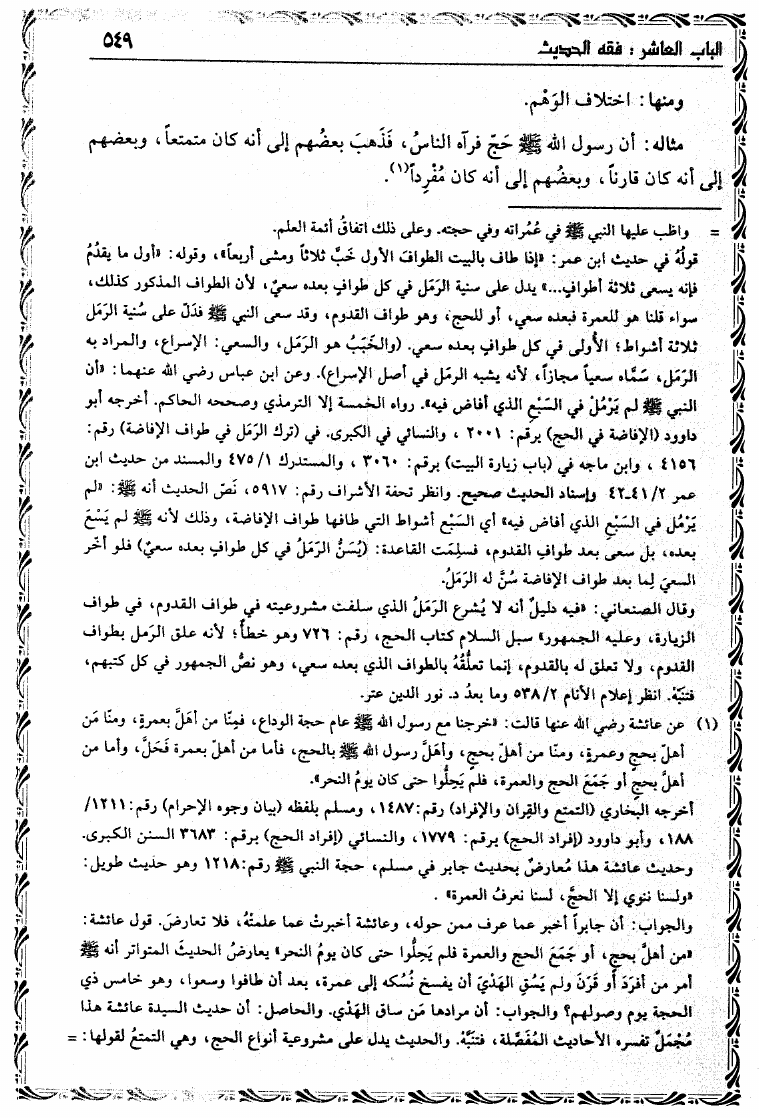 الباب العاشر : فقه الحديث
٥٤٩
ومنها: اختلاف الوَهْم.
مثاله: أن رسول الله ﷺ حَجّ فرآه الناسُ، فَذَهبَ بعضُهم إلى أنه كان متمتعاً، وبعضهم
إلى أنه كان قارناً، وبعضُهم إلى أنه كان مُفْرِداً(١).
= واظب عليها النبي ﷺ في عُمُراته وفي حجته. وعلى ذلك اتفاقُ أئمة العلم.
قولُهُ في حديث ابن عمر: «إذا طاف بالبيت الطوافَ الأول خَبَّ ثلاثاً ومشى أربعاً»، وقوله: «أول ما يقدُمُ
فإنه يسعى ثلاثة أطوافٍ...» يدل على سنية الرَمَل في كل طوافٍ بعده سعيٌ، لأن الطواف المذكور كذلك،
سواء قلنا هو للعمرة فبعده سعي، أو للحج، وهو طواف القدوم، وقد سعى النبي ﷺ فَدَلّ على سُنية الرَمَل
ثلاثة أشواط؛ الأُولى في كل طوافٍ بعده سعي. (والخَبَبُ هو الرَمَل، والسعي: الإسراع، والمراد به
الرَمَل، سَمَّاه سعياً مجازاً، لأنه يشبه الرمَل في أصل الإسراع). وعن ابن عباس رضي الله عنهما: «أن
النبي ﷺ لم يَرْمُلْ في السَبْعِ الذي أفاض فيه». رواه الخمسة إلا الترمذي وصححه الحاكم. أخرجه أبو
داوود (الإفاضة في الحج) برقم: ٢٠٠١ ، والنسائي في الكبرى. في (ترك الرَمَل في طواف الإفاضة) رقم:
٤١٥٦ ، وابن ماجه في (باب زيارة البيت) برقم: ٣٠٦٠ ، والمستدرك ١/ ٤٧٥ والمسند من حديث ابن
عمر ٢/ ٤١-٤٢ وإسناد الحديث صحيح. وانظر تحفة الأشراف رقم: ٥٩١٧، نَصّ الحديث أنه ﷺ: «لم
يَرْمُل في السَبْعِ الذي أفاض فيه» أي السَبْع أشواط التي طافها طواف الإفاضة، وذلك لأنه ﷺ لم يَسْعَ
بعده، بل سعى بعد طوافِ القدوم، فسلِمَت القاعدة: (يُسَنُّ الرَمَلُ في كل طوافٍ بعده سعيٌ) فلو أخّر
السعيَ لِما بعد طواف الإفاضة سُنَّ له الرَمَلُ.
وقال الصنعاني: «فيه دليلٌ أنه لا يُشرع الرَمَلُ الذي سلفت مشروعيته في طواف القدوم، في طواف
الزيارة، وعليه الجمهور» سبل السلام كتاب الحج، رقم: ٧٢٦ وهو خطأٌ؛ لأنه علق الرَمل بطواف
القدوم، ولا تعلق له بالقدوم، إنما تعلُّقُهُ بالطواف الذي بعده سعي، وهو نصُّ الجمهور في كل كتبهم،
فتنَبَّهْ. انظر إعلام الأنام ٢/ ٥٣٨ وما بعدُ د. نور الدين عتر.
(١) عن عائشة رضي الله عنها قالت: «خرجنا مع رسول الله ﷺ عام حجة الوداع، فمِنّا من أهَلَّ بعمرةٍ، ومنّا مَن
أهلّ بحجٍ وعمرةٍ، ومنّا من أهلّ بحجٍ، وأهَلَّ رسول الله ﷺ بالحج، فأما من أهلّ بعمرة فَحَلَّ، وأما من
أهلَّ بحجٍ أو جَمَعَ الحج والعمرة، فلم يَحِلُّوا حتى كان يومُ النحر».
أخرجه البخاري (التمتع والقِران والإفراد) رقم:١٤٨٧، ومسلم بلفظه (بيان وجوه الإحرام) رقم:١٢١١/
١٨٨، وأبو داوود (إفراد الحج) برقم: ١٧٧٩، والنسائي (إفراد الحج) برقم: ٣٦٨٣ السنن الكبرى.
وحديث عائشة هذا مُعارضٌ بحديث جابر في مسلم، حجة النبي ﷺ رقم:١٢١٨ وهو حديث طويل:
«ولسنا ننوي إلا الحجَّ، لسنا نعرفُ العمرة» .
والجواب: أن جابراً أخبر عما عرف ممن حوله، وعائشة أخبرتْ عما علمتْهُ، فلا تعارضَ. قول عائشة:
«من أهلَّ بحجٍ، أو جَمَعَ الحج والعمرة فلم يَحِلُّوا حتى كان يومُ النحر» يعارضُ الحديثَ المتواتر أنه ﷺ
أمر من أفرَدَ أو قَرَنَ ولم يَسُقِ الهَدْيَ أن يفسخ نُسُكه إلى عمرة، بعد أن طافوا وسعوا، وهو خامس ذي
الحجة يوم وصولهم؟ والجواب: أن مرادها مَن ساق الهَدْي. والحاصل: أن حديث السيدة عائشة هذا
مُجْمَلٌ تفسره الأحاديث المُفَصَّلة، فتنَبَّهْ. والحديث يدل على مشروعية أنواع الحج، وهي التمتعُ لقولها: =